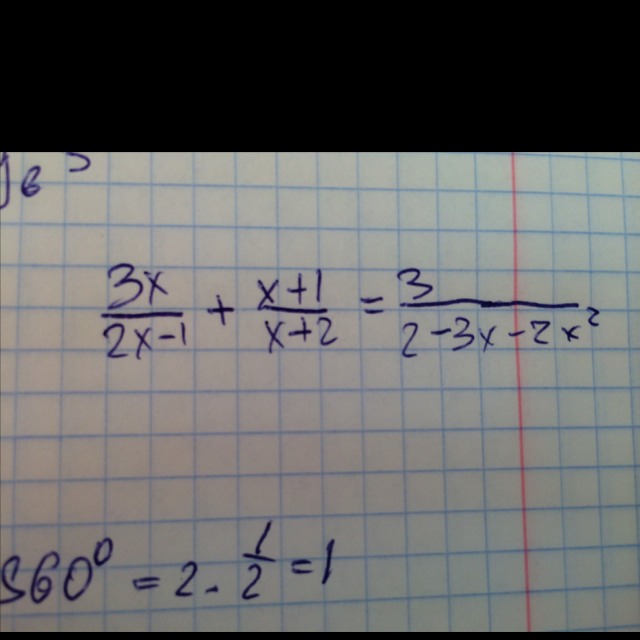 3x/(2x-1) + (x+1)/(x+2) = 3/(2-3x-2x²)
60⁰ = 2 · 1/2 = 1